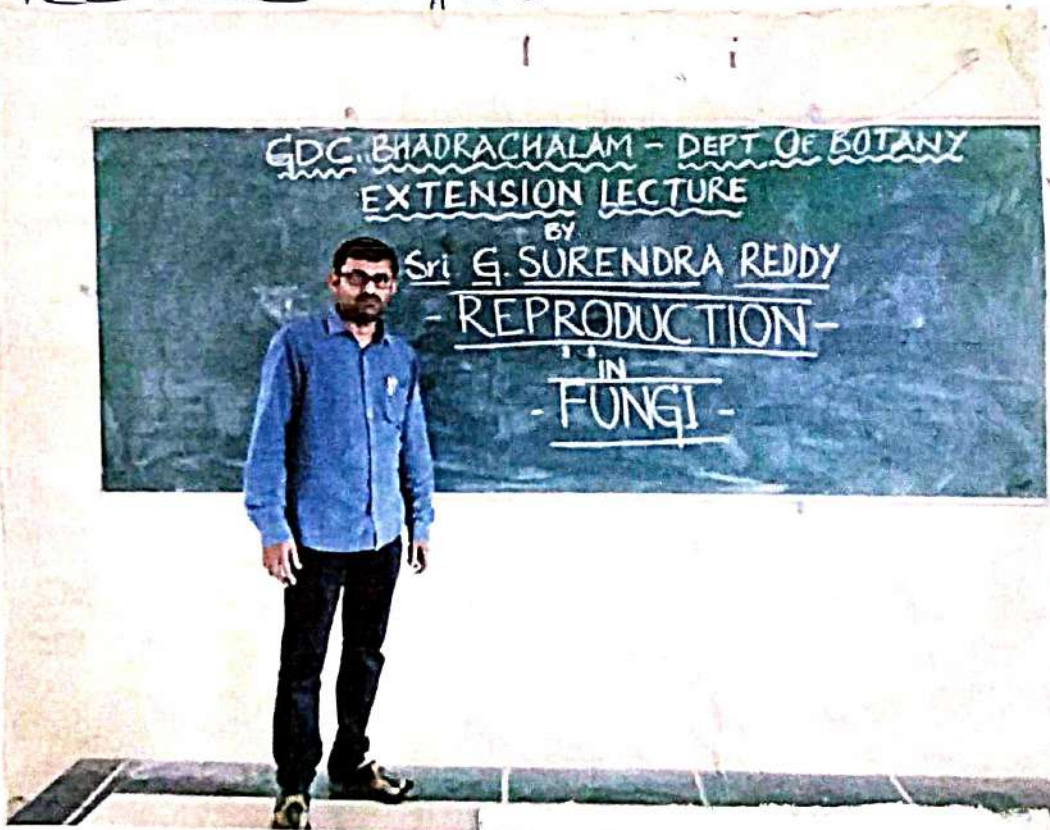 GDC. BHADRACHALAM - DEPT OF BOTANY
EXTENSION LECTURE
BY
Sri G. SURENDRA REDDY
- REPRODUCTION -
IN
- FUNGI -